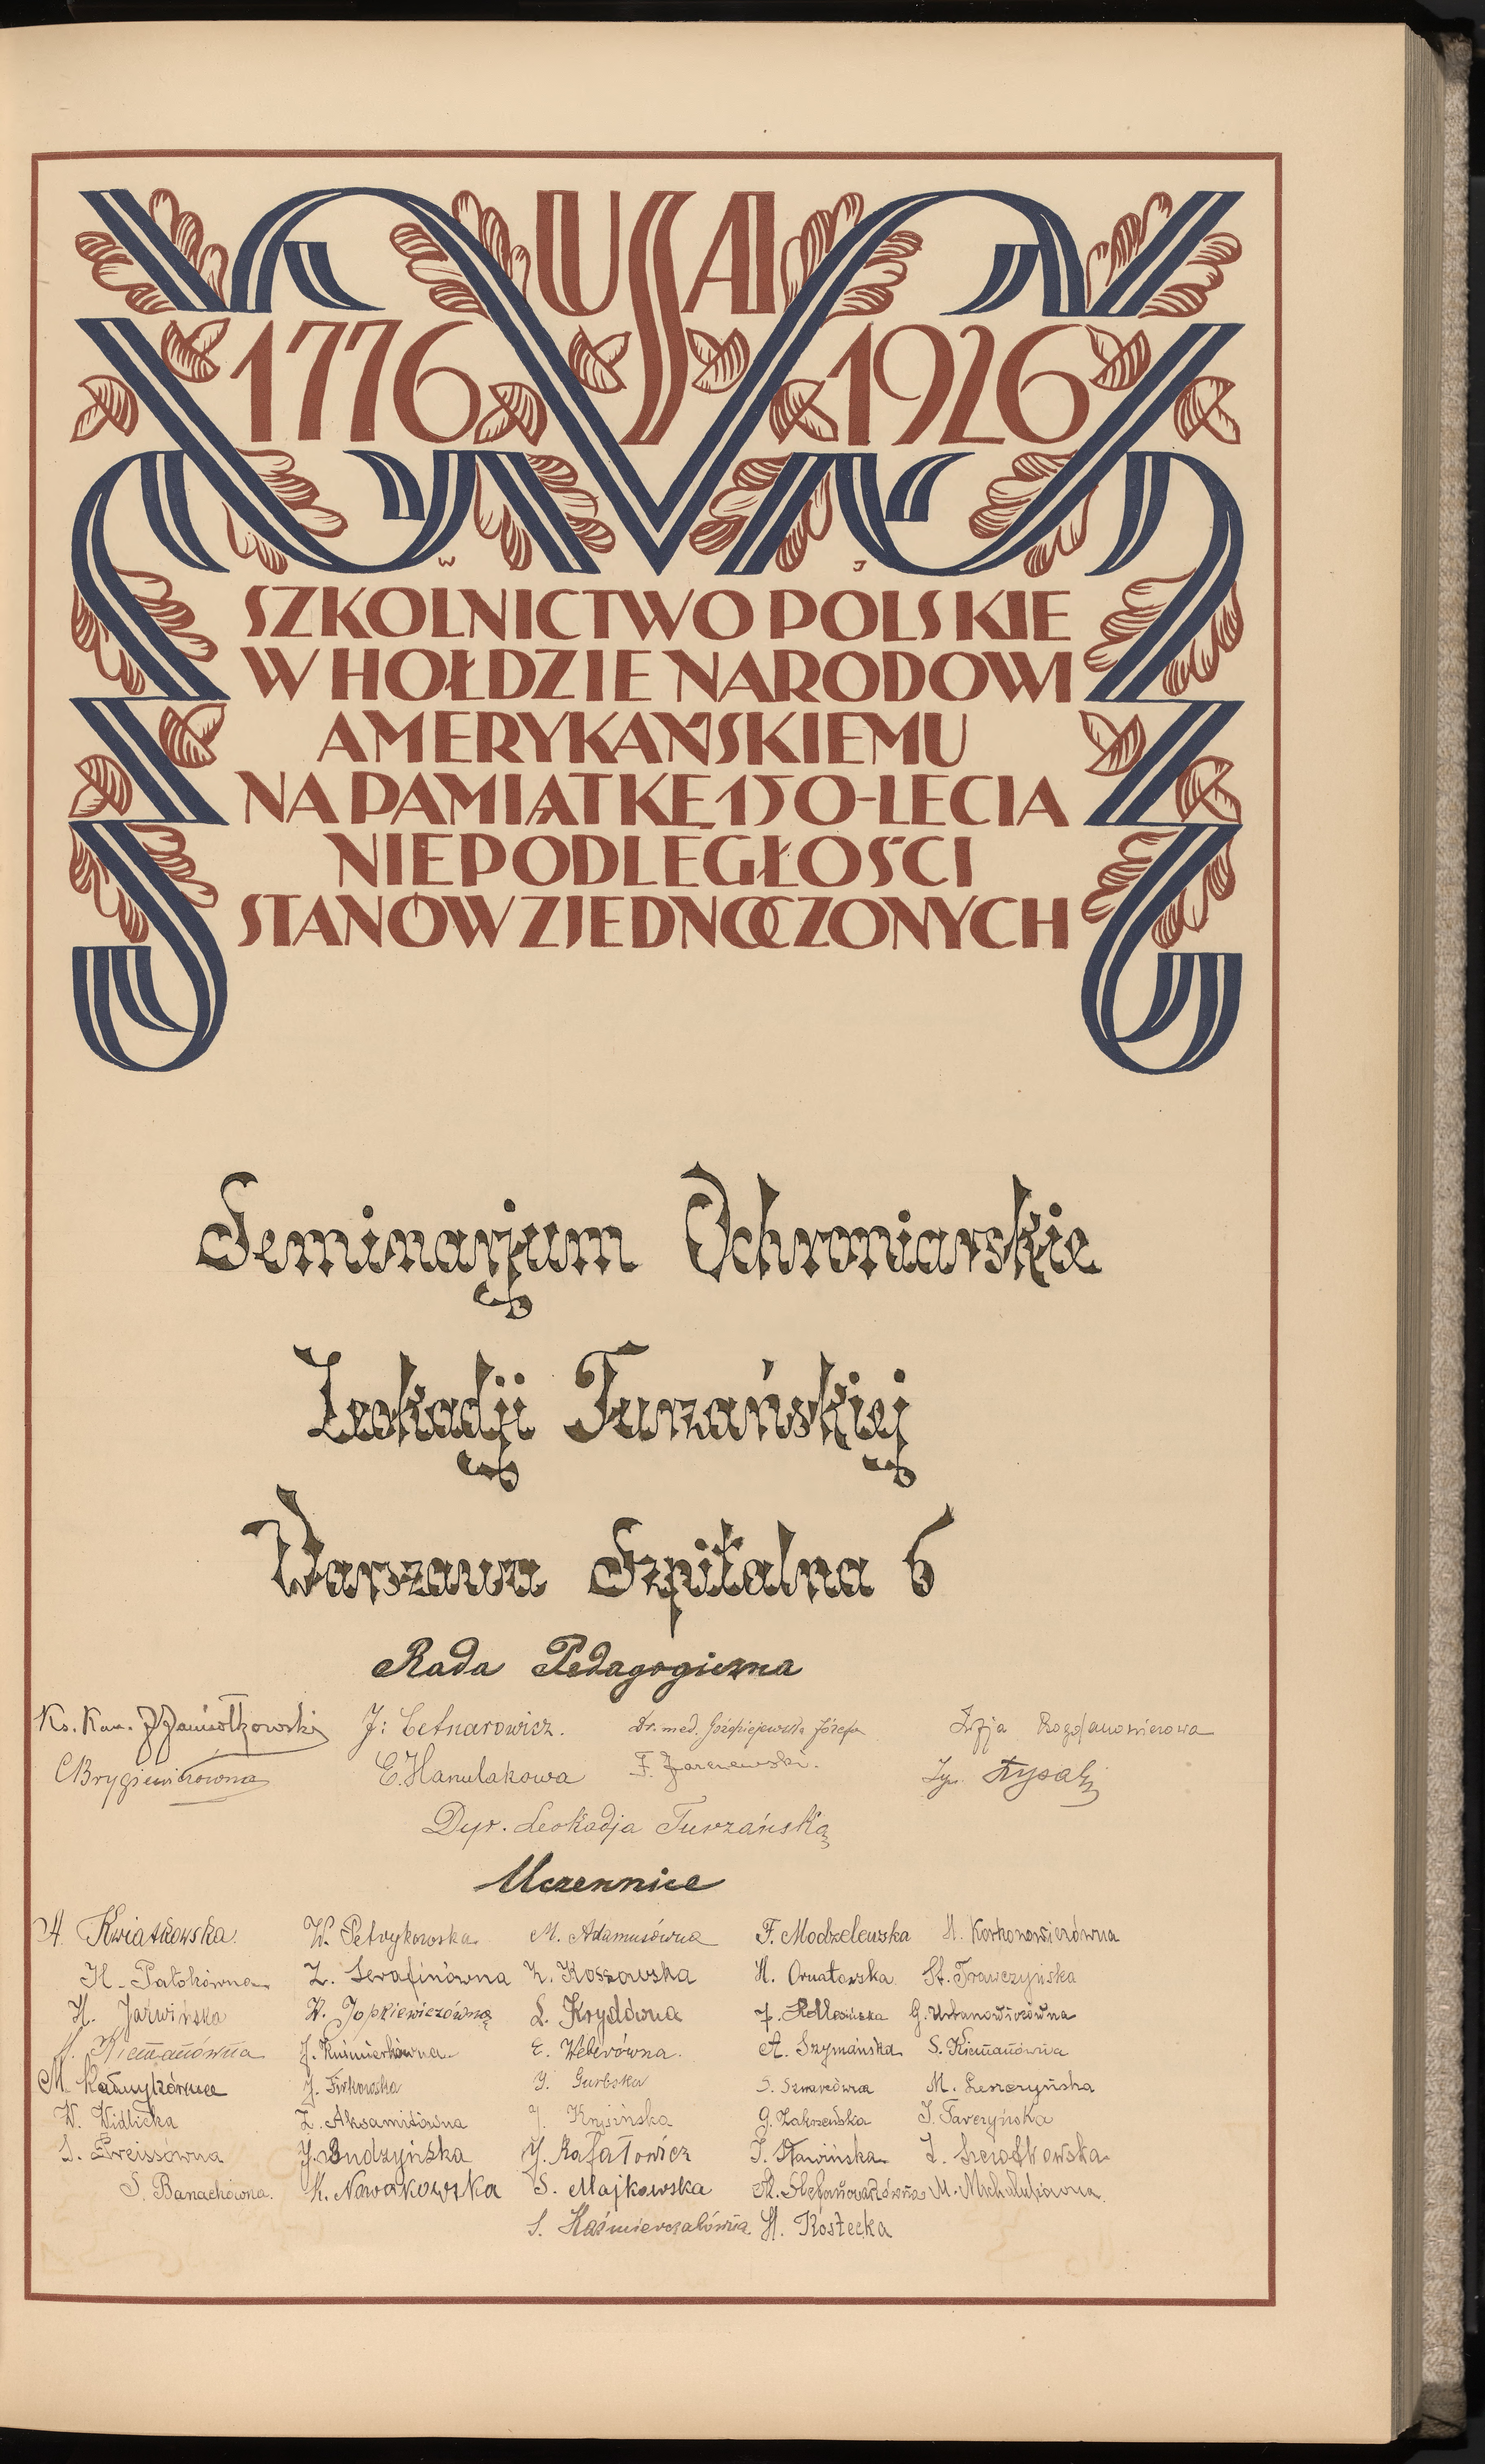 USA
1776 1926
W J
SZKOLNICTWO POLSKIE
W HOŁDZIE NARODOWI
AMERYKAŃSKIEMU
NA PAMIĄTKĘ 150-LECIA
NIEPODLEGŁOŚCI
STANÓW ZJEDNOCZONYCH
Seminarjum Ochroniarskie
Leokadji Turzańskiej
Warszawa Szpitalna 6
Rada Pedagogiczna
Ks. Kan. J. Jamiołkowski J. Letnarowicz. Dr. med. Józefa Zofja
C Brygiewiczówna E. Hanulakowa F. Jarczewski.
Dyr. Leokadja Turzańska
Uczennice
A. Kwiatkowska. W. Petrykowska M. Adamusówna F. Modzelewska H. Korkonowiczówna
H. Patokówna Z. Serafinówna K. Kossowska H. Ornatowska St. Trawczyńska
H. Jarwińska W. Jopkiewiczówna L. Krydówna G. Urbanowiczówna
H. Niemanówna J. Kuśmierkówna E. Weberówna. A. Szymańska S. Niemanówna
M. Kałmykówna J. Firkowska J. Gurbska S. M. Leszczyńska
W. Widlicka Z. Aksamitówna J. Krysińska G. Zakrzeńska J. Tarczyńska
S. Preissówna J. Budzyńska J. Rafałowicz J. Sławińska
S. Banachówna. K. Nowakowska S. Majkowska M. Stefanowiczówna M. Michalukówna
S. Kaźmierczakówna. H. Kostecka